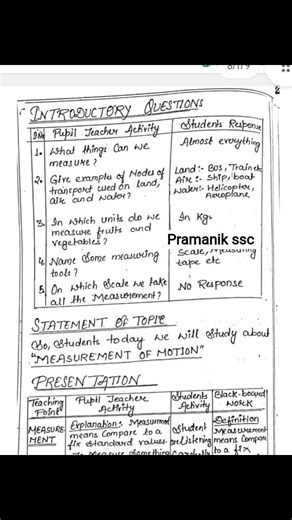 8/179
INTRODUCTORY QUESTIONS
S.No Pupil Teacher Activity Students Response
1. What things can we measure? Almost everything
2. Give example of Modes of transport used on land, air and water? Land:- Bus, Train etc Air:- Ship, boat Water:- Helicopter, Aeroplane
3. In which units do we measure fruits and vegetables? In Kgs
Pramanik ssc
4. Name Some measuring tools? Scale, Measuring tape etc
5. On which Scale we take all the Measurement? No Response
STATEMENT OF TOPIC
So, Students today we will Study about
"MEASUREMENT OF MOTION"
PRESENTATION
Teaching Point Pupil Teacher Activity Students Activity Black-board Work
MEASUREMENT Explanation:- Measurement means Compare to a fix standard values. Student are listening Definition Measurement means Compare to a fix